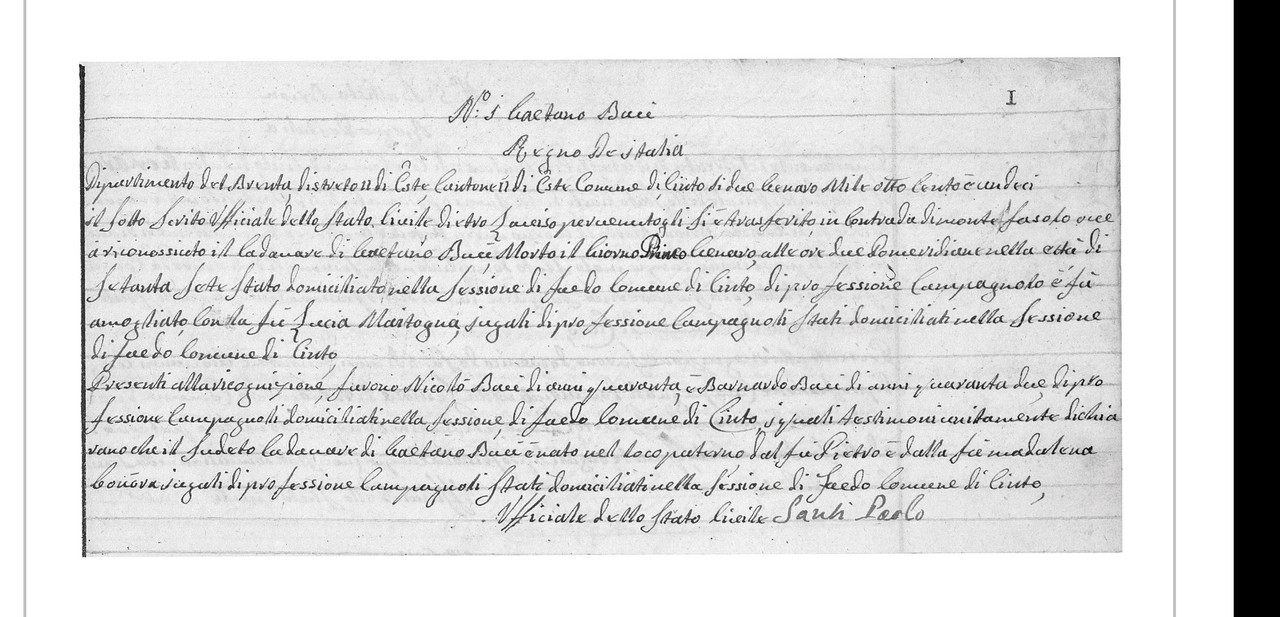 I
N.º 1 Gaetano Baci
Regno De italia
Dipartimento del Brenta, distreto II di Este, Cantone II di Este Comune di Cinto li due Genaro Mile otto Cento e undeci
il sotto scrito Ufficiale dello Stato Civile dietro L'aviso pervenutogli si è trasferito, in Contrada di monte fasolo, ove
à riconossciuto il Cadavare di Gaetano Baci, Morto il Giorno Primo Genaro, alle ore due Pomeridiane nella età di
setanta sete stato domiciliato nella sessione di faedo Comune di Cinto, di pro fessione Campagnolo è fù
amogliato, Con la fù Lucia Martogna, iugali di pro fessione Campagnoli stati domiciliati nella sessione
di faedo Comune di Cinto,
Presenti alla ricognizione, furono Nicolò Baci di anni quaranta, è Barnardo Baci di anni quaranta due, di pro
fessione Campagnoli domiciliati nella sessione di faedo Comune di Cinto, i quali testimoni unitamente dichia
rano che il sudeto Cadavare di Gaetano Baci è nato nel loco paterno dal fù Pietro è dalla fù madalena
iugali di pro fessione Campagnoli stati domiciliati nella sessione di faedo Comune di Cinto,
Ufficiale dello stato Civile Santi Paolo